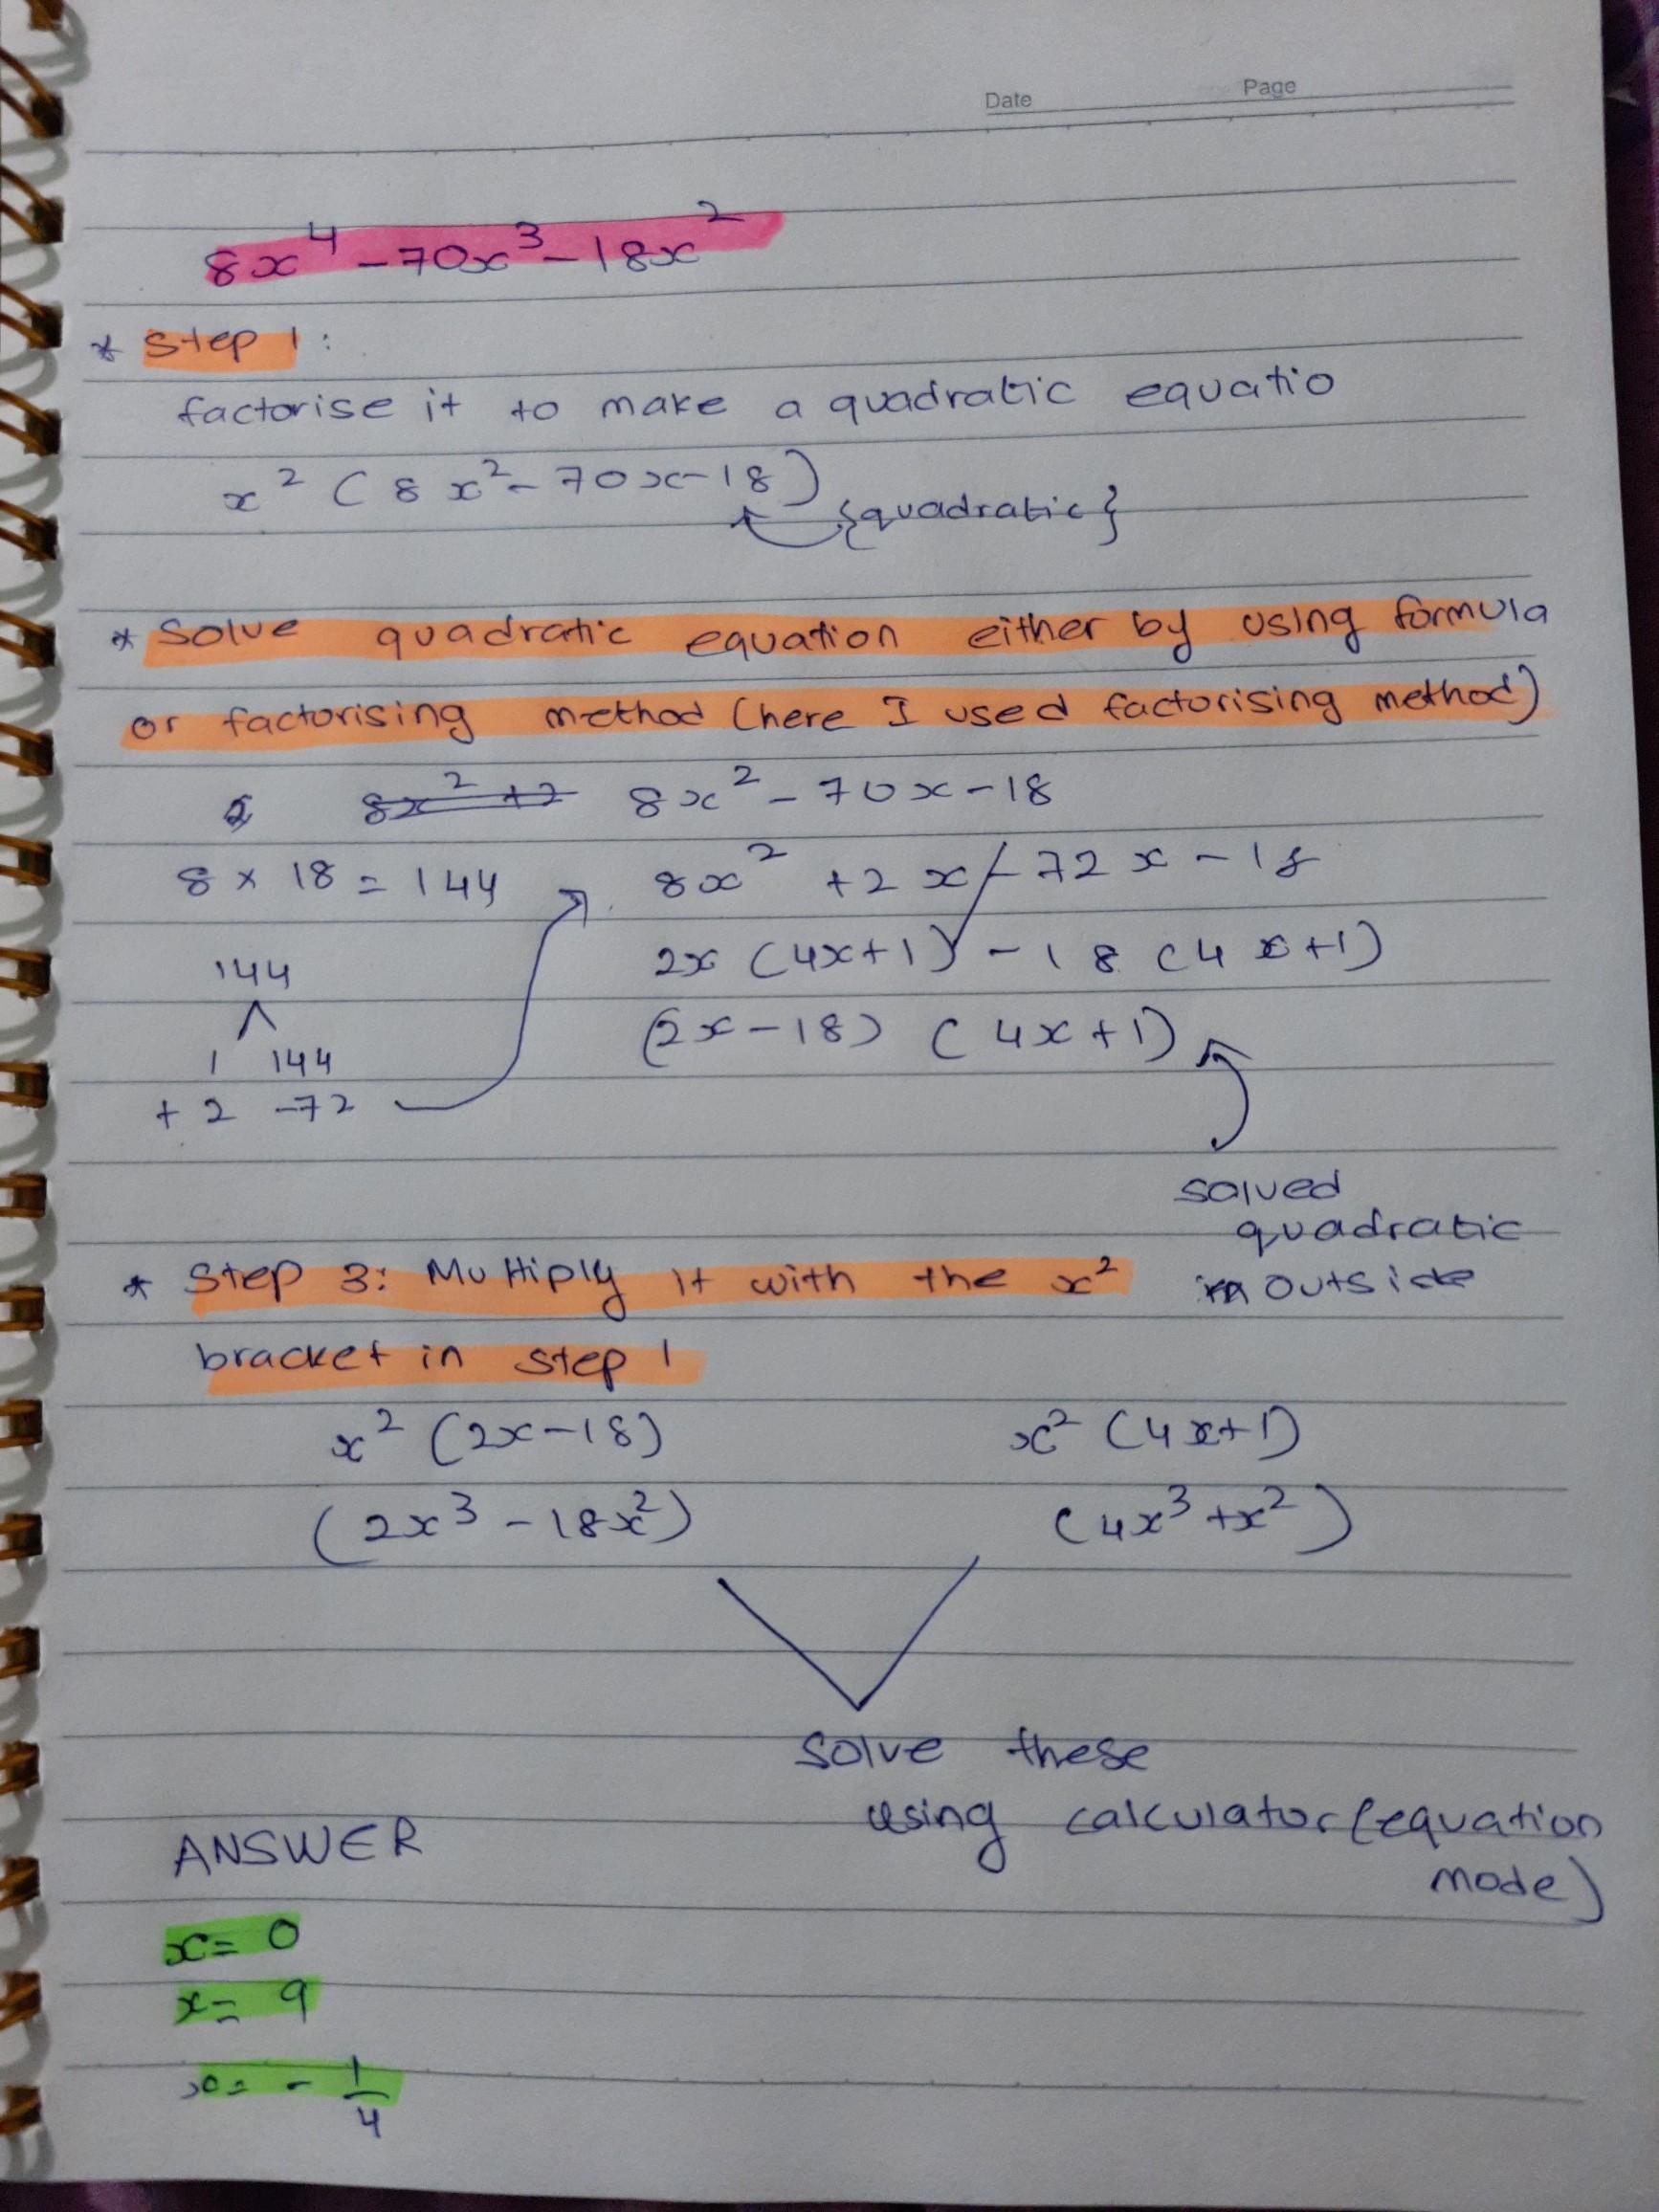 Date Page
8x⁴ - 70x³ - 18x²
* Step 1:
factorise it to make a quadratic equatio
x² (8x² - 70x - 18)
{quadratic}
* Solve quadratic equation either by using formula
or factorising method (here I used factorising method)
8x² + 2 8x² - 70x - 18
8 x 18 = 144 8x² + 2x - 72x - 18
144 2x (4x+1) - 18 (4x+1)
1 144 (2x - 18) (4x + 1)
+2 -72
solved
quadratic
* Step 3: Multiply it with the x² outside
bracket in step 1
x² (2x - 18) x² (4x+1)
(2x³ - 18x²) (4x³ + x²)
Solve these
using calculator (equation
mode)
ANSWER
x = 0
x = 9
x = - 1/4